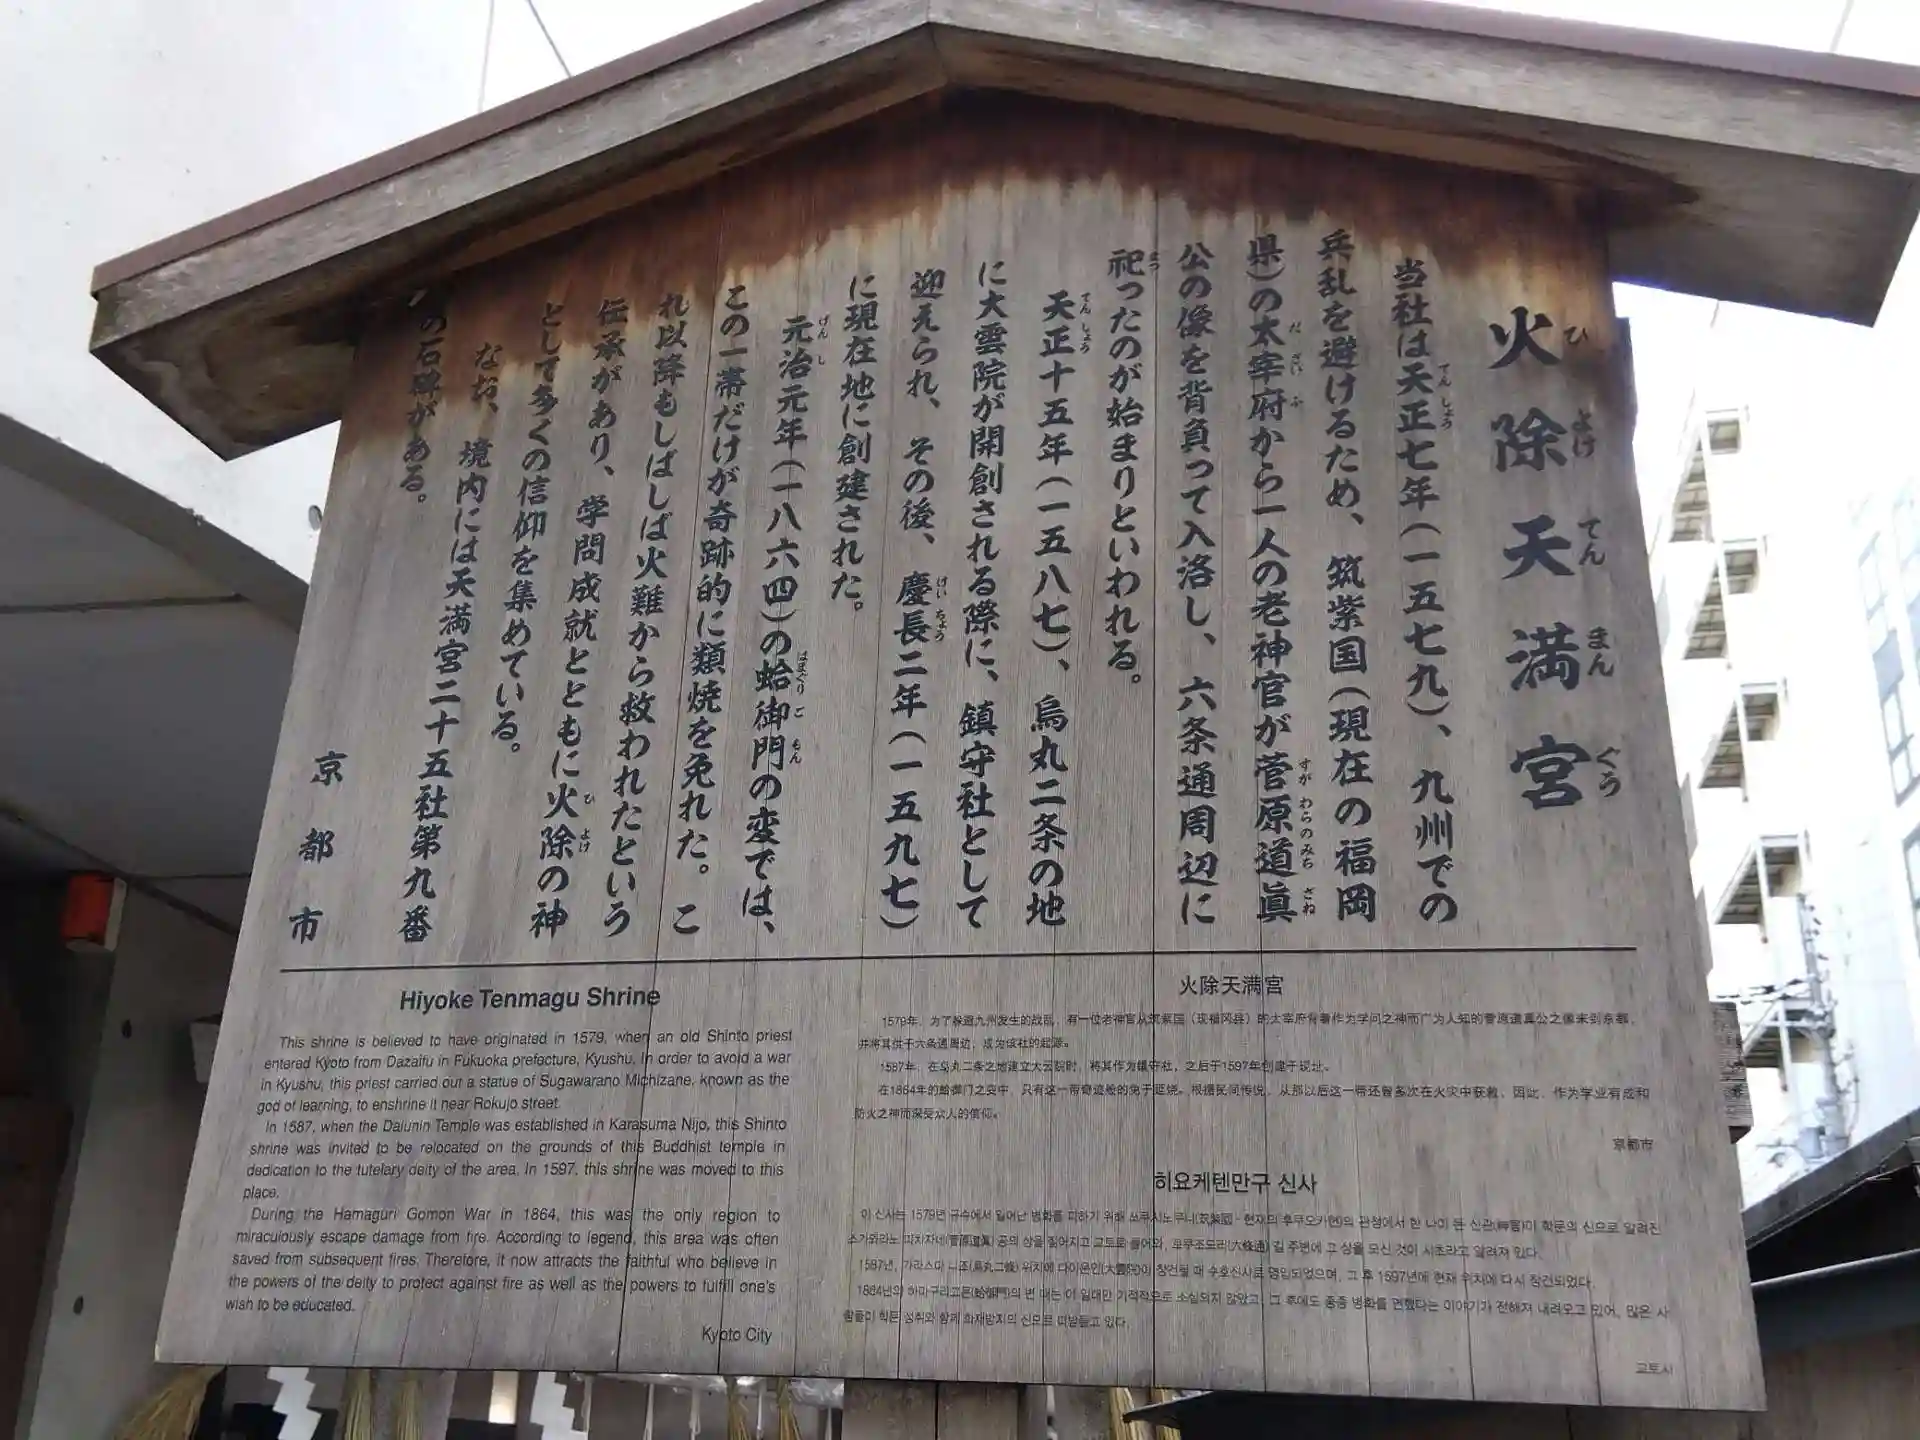 火除天満宮
ひ よけ てん まん ぐう
当社は天正七年(一五七九)、九州での
兵乱を避けるため、筑紫国(現在の福岡
県)の太宰府から一人の老神官が菅原道眞
公の像を背負って入洛し、六条通周辺に
祀ったのが始まりといわれる。
天正十五年(一五八七)、烏丸二条の地
に大雲院が開創される際に、鎮守社として
迎えられ、その後、慶長二年(一五九七)
に現在地に創建された。
元治元年(一八六四)の蛤御門の変では、
この一帯だけが奇跡的に類焼を免れた。こ
れ以降もしばしば火難から救われたという
伝承があり、学問成就とともに火除の神
として多くの信仰を集めている。
なお、境内には天満宮二十五社第九番
の石碑がある。
京都市
Hiyoke Tenmagu Shrine
This shrine is believed to have originated in 1579, when an old Shinto priest
entered Kyoto from Dazaifu in Fukuoka prefecture, Kyushu. In order to avoid a war
in Kyushu, this priest carried out a statue of Sugawarano Michizane, known as the
god of learning, to enshrine it near Rokujo street.
In 1587, when the Daiunin Temple was established in Karasuma Nijo, this Shinto
shrine was invited to be relocated on the grounds of this Buddhist temple in
dedication to the tutelary deity of the area. In 1597, this shrine was moved to this
place.
During the Hamaguri Gomon War in 1864, this was the only region to
miraculously escape damage from fire. According to legend, this area was often
saved from subsequent fires. Therefore, it now attracts the faithful who believe in
the powers of the deity to protect against fire as well as the powers to fulfill one's
wish to be educated.
Kyoto City
火除天满宫
1579年，为了躲避九州发生的战乱，有一位老神官从筑紫国（现福冈县）的太宰府背着作为学问之神而广为人知的菅原道真公之像来到京都，
并将其供于六条通周边，成为该社的起源。
1587年，在乌丸二条之地建立大云院时，将其作为镇守社，之后于1597年创建于现址。
在1864年的蛤御门之变中，只有这一带奇迹般的免于延烧。根据民间传说，从那以后这一带还曾多次在火灾中获救，因此，作为学业有成和
防火之神而深受众人的信仰。
京都市
히요케텐만구 신사
이 신사는 1579년 규슈에서 일어난 병화를 피하기 위해 쓰쿠시노쿠니(筑紫國 - 현재의 후쿠오카현)의 관청에서 한 나이 든 신관(神官)이 학문의 신으로 알려진
스가와라노 미치자네(菅原道眞) 공의 상을 짊어지고 교토로 들어와, 로쿠조도리(六條通) 길 주변에 그 상을 모신 것이 시초라고 알려져 있다.
1587년, 가라스마 니조(烏丸二條) 위치에 다이운인(大雲院)이 창건될 때 수호신사로 영입되었으며, 그 후 1597년에 현재 위치에 다시 창건되었다.
1864년의 하마구리고몬(蛤御門)의 변 때는 이 일대만 기적적으로 소실되지 않았고, 그 후에도 종종 병화를 면했다는 이야기가 전해져 내려오고 있어, 많은 사
람들이 학문 성취와 함께 화재방지의 신으로 떠받들고 있다.
교토시